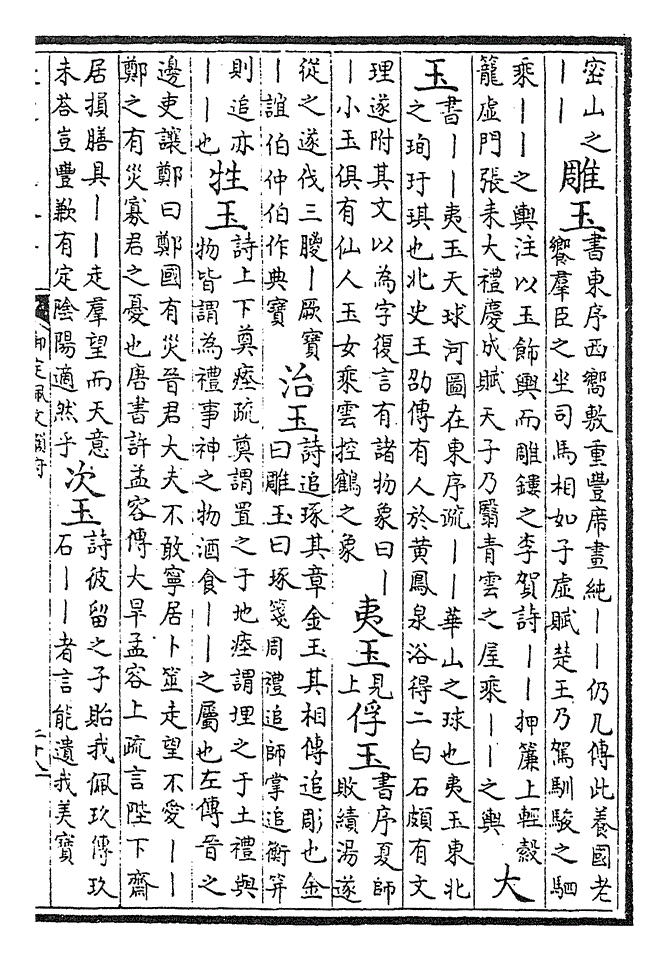 密山之
｜｜
雕玉
書東序西嚮敷重豐席畫純｜｜仍几傳此養國老
饗羣臣之坐司馬相如子虛賦楚王乃駕馴駮之駟
乘｜｜之輿注以玉飾輿而雕鏤之李賀詩｜｜押簾上輕縠
籠虛門張耒大禮慶成賦天子乃翳青雲之屋乘｜｜之輿
大
玉
書｜｜夷玉天球河圖在東序疏｜｜華山之球也夷玉東北
之珣玗琪也北史王劭傳有人於黄鳳泉浴得二白石頗有文
理遂附其文以為字復言有諸物象曰｜
｜小玉俱有仙人玉女乘雲控鶴之象
夷玉
見
上
俘玉
書序夏師
敗績湯遂
從之遂伐三朡｜厥寶
｜誼伯仲伯作典寶
治玉
詩追琢其章金玉其相傳追彫也金
曰雕玉曰琢箋周禮追師掌追衡筓
則追亦
｜｜也
牲玉
詩上下奠瘞疏奠謂置之于地瘞謂埋之于土禮與
物皆謂為禮事神之物酒食｜｜之屬也左傳晉之
邊吏讓鄭曰鄭國有災晉君大夫不敢寧居卜筮走望不愛｜｜
鄭之有災寡君之憂也唐書許孟容傳大旱孟容上疏言陛下齋
居損膳具｜｜走羣望而天意
未荅豈豐歉有定陰陽適然乎
次玉
詩彼留之子貽我佩玖傳玖
石｜｜者言能遺我美寶
御定佩文韻府